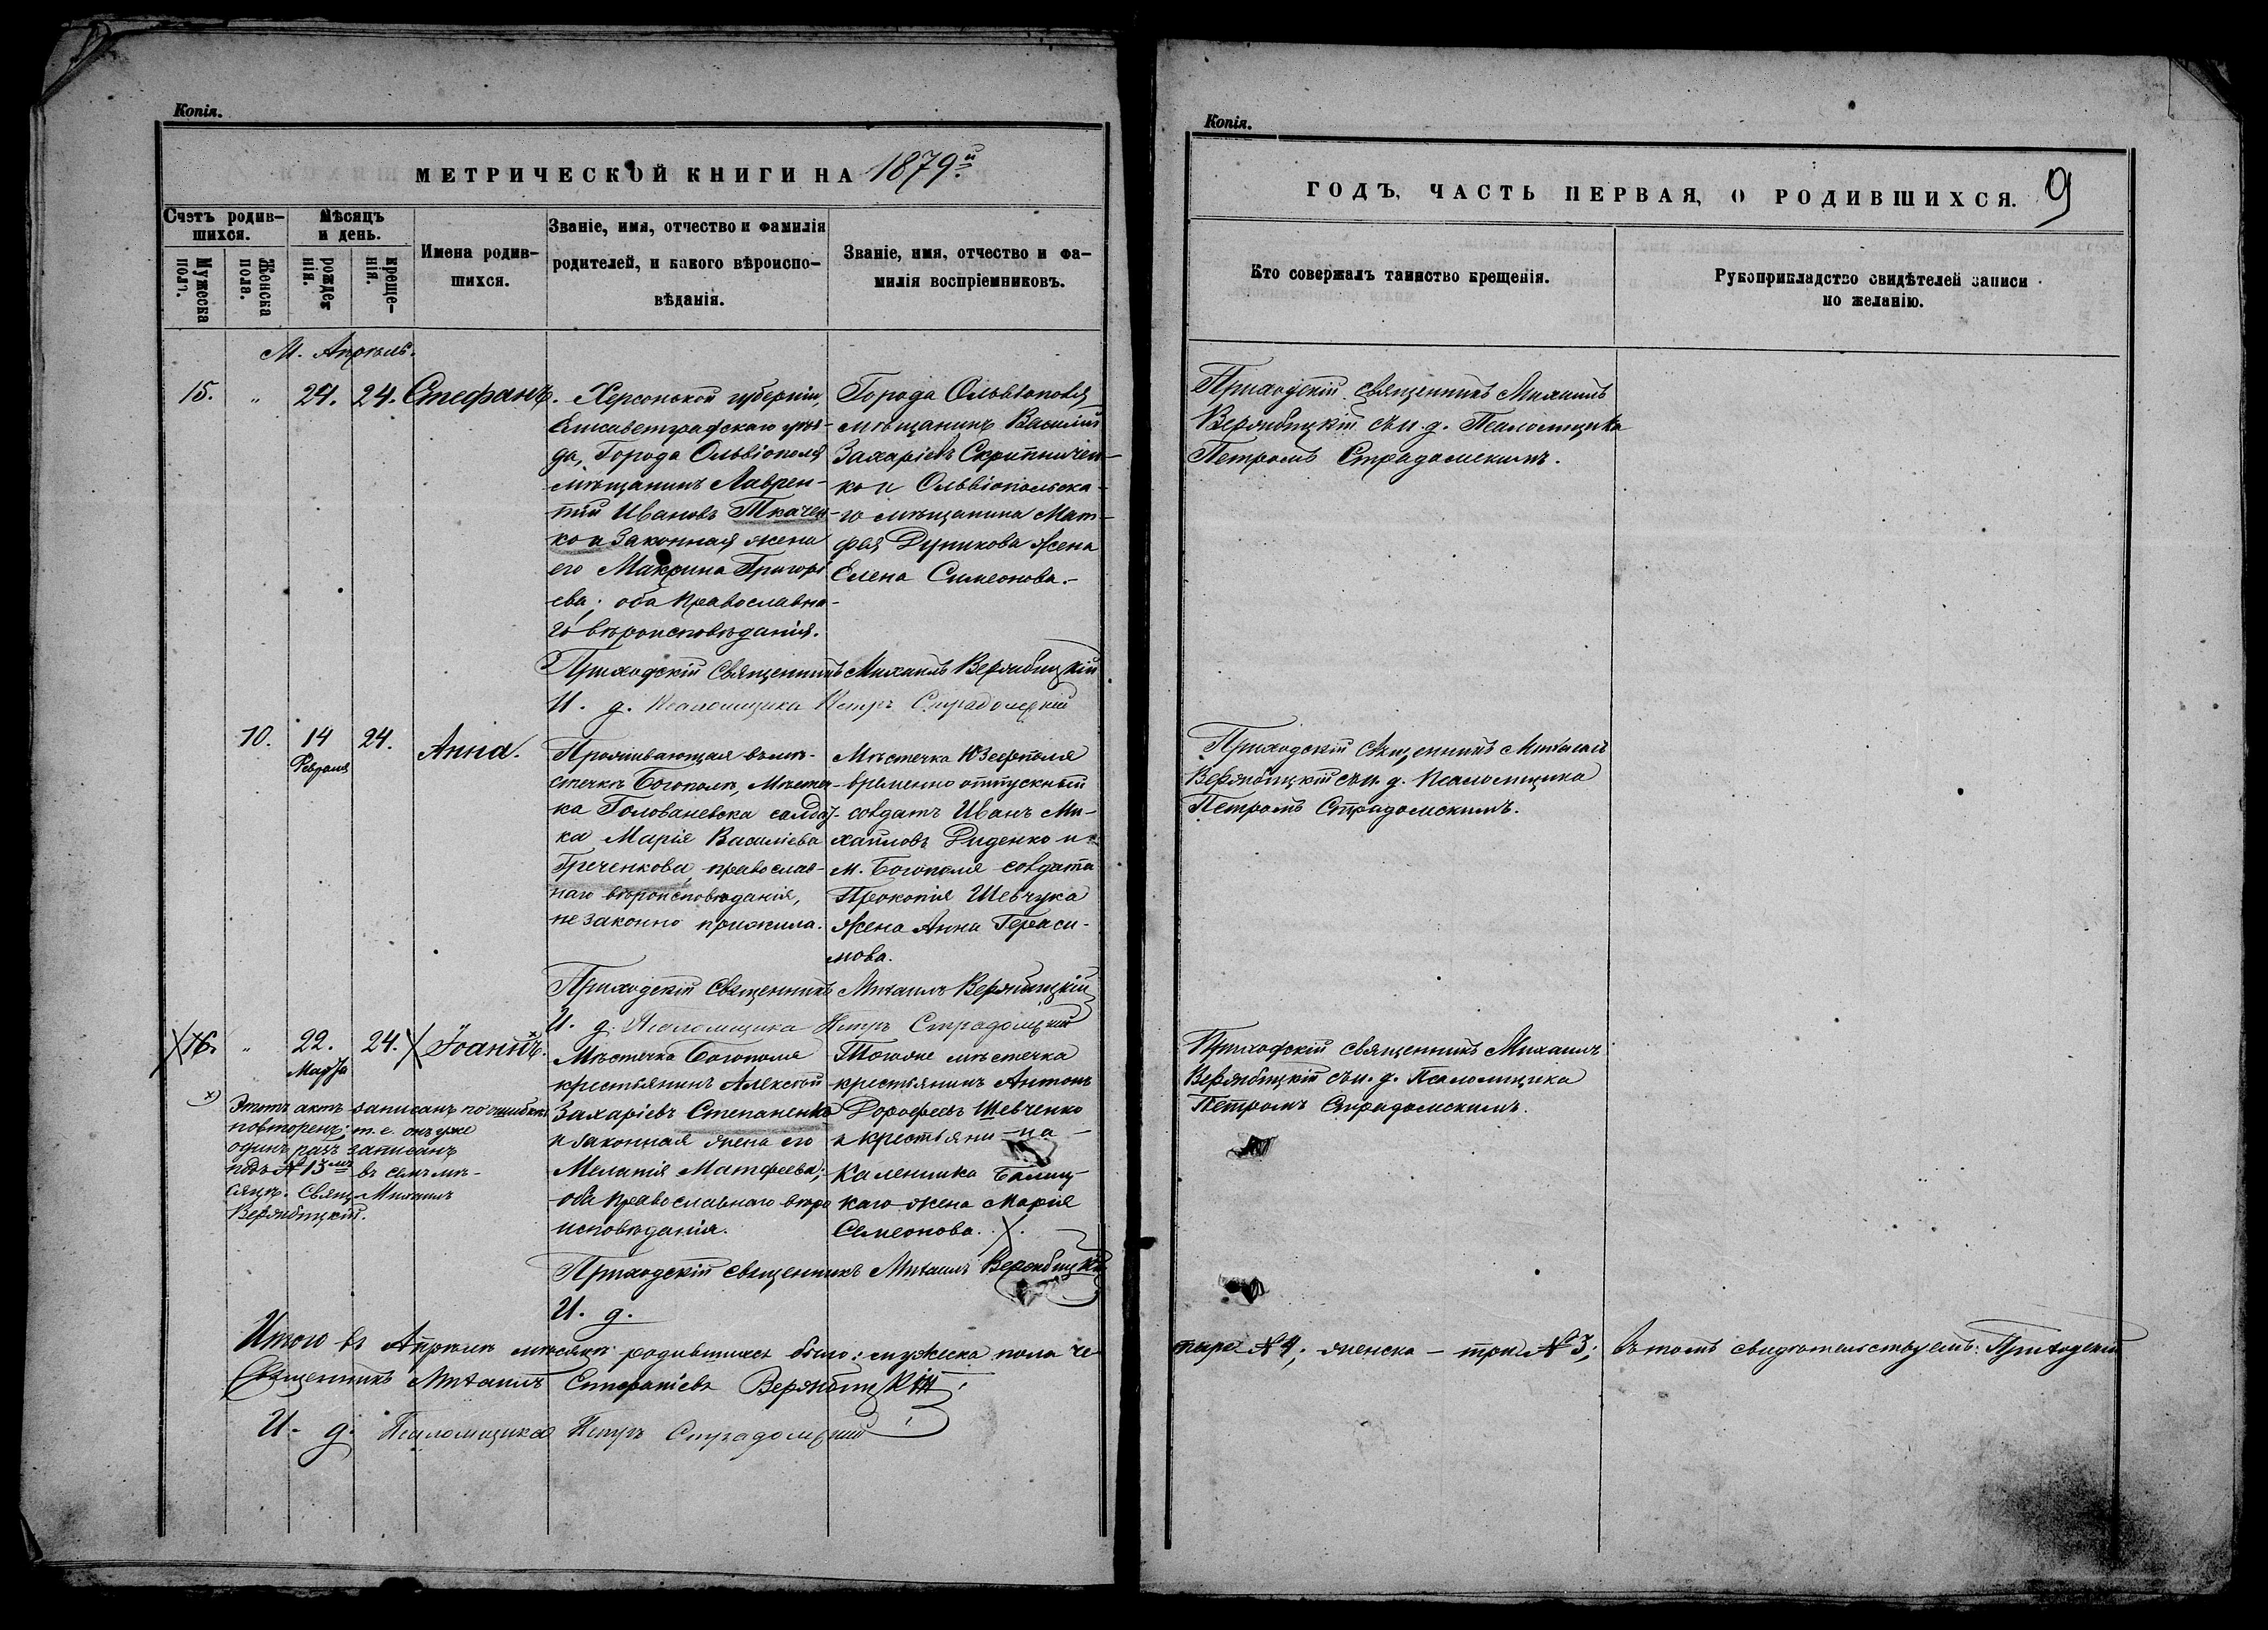 Копія.
МЕТРИЧЕСКОЙ КНИГИ НА 1879й
Счетъ родив-
шихся.
Мѣсяцъ
и день.
Имена родив-
шихся.
Званіе, имя, отчество и фамилія
родителей, и какого вѣроиспо-
вѣданія.
Званіе, имя, отчество и фа-
милія воспріемниковъ.
Мужеска
пола.
Женска
пола.
рожде-
нія.
креще-
нія.
М. Апрѣль.
15. " 24. 24. Стефанъ.
Херсонской губерніи,
Елисаветградскаго уѣз-
да, Города Ольвіополя
мѣщанинъ Лаврен-
тій Ивановъ Ткачен-
ко и законная жена
его Макрина Григорі-
ева; оба Православна-
го вѣроисповѣданія.
Города Ольвіополя
мѣщанинъ Василій
Захаріевъ Скрипничен-
ко и Ольвіопольска-
го мѣщанина Мат-
фея Дуникова жена
Елена Симеонова.-
Приходскій Священникъ Михаилъ Вержбицкій
И. д. Псаломщика Петръ Страдомскій
10. 14 Февраля 24. Анна.
Проживающая въ мѣ-
стечкѣ Богополѣ, Мѣстеч-
ка Голованевска солдат-
ка Марія Василіева
Греченкова, православ-
наго вѣроисповѣданія,
незаконно прижила.
Мѣстечка Юзефполя
временно отпускный
солдатъ Иванъ Ми-
хайловъ Диденко и
м. Богополя солдата
Прокопія Шевчука
жена Анна Гераси-
мова.
Приходскій Священникъ Михаилъ Вержбицкій
И. д. Псаломщика Петръ Страдомскій
16. " 22. Марта 24. Іоаннъ.
Мѣстечка Богополя
крестьянинъ Алексѣй
Захаріевъ Степаненко
и законная жена его
Меланія Матфеева;
оба Православнаго вѣро
исповѣданія.
Тогоже мѣстечка
крестьянинъ Антонъ
Дорофеевъ Шевченко
и крестьяни-на
Каленика
каго жена Марія
Семеонова.
х) Этотъ актъ записанъ по ошибкѣ
повторенъ; т.е. онъ уже
одинъ разъ записанъ
подъ № 13мъ въ семъ мѣ-
сяцѣ. Свящ. Михаилъ
Вержбицкій.
Приходскій священникъ Михаилъ Вержбицкій
И. д.
Итого въ Апрѣлѣ мѣсяцѣ родившихся было: мужеска пола че-
Священникъ Михаилъ Стефаніевъ Вержбицкій
И. д. Псаломщика Петръ Страдомскій
Копія.
ГОДЪ, ЧАСТЬ ПЕРВАЯ, О РОДИВШИХСЯ. 9
Кто совержалъ таинство крещенія.
Рукоприкладство свидѣтелей записи
по желанію.
Приходскій священникъ Михаилъ
Вержбицкій съ и. д. Псаломщика
Петромъ Страдомскимъ.
Приходскій Священникъ Михаилъ
Вержбицкій съ и. д. Псаломщика
Петромъ Страдомскимъ.
Приходскій священникъ Михаилъ
Вержбицкій съ и. д. Псаломщика
Петромъ Страдомскимъ.
тыре № 4; женска - три № 3; въ томъ свидѣтельствуемъ: Приходскій